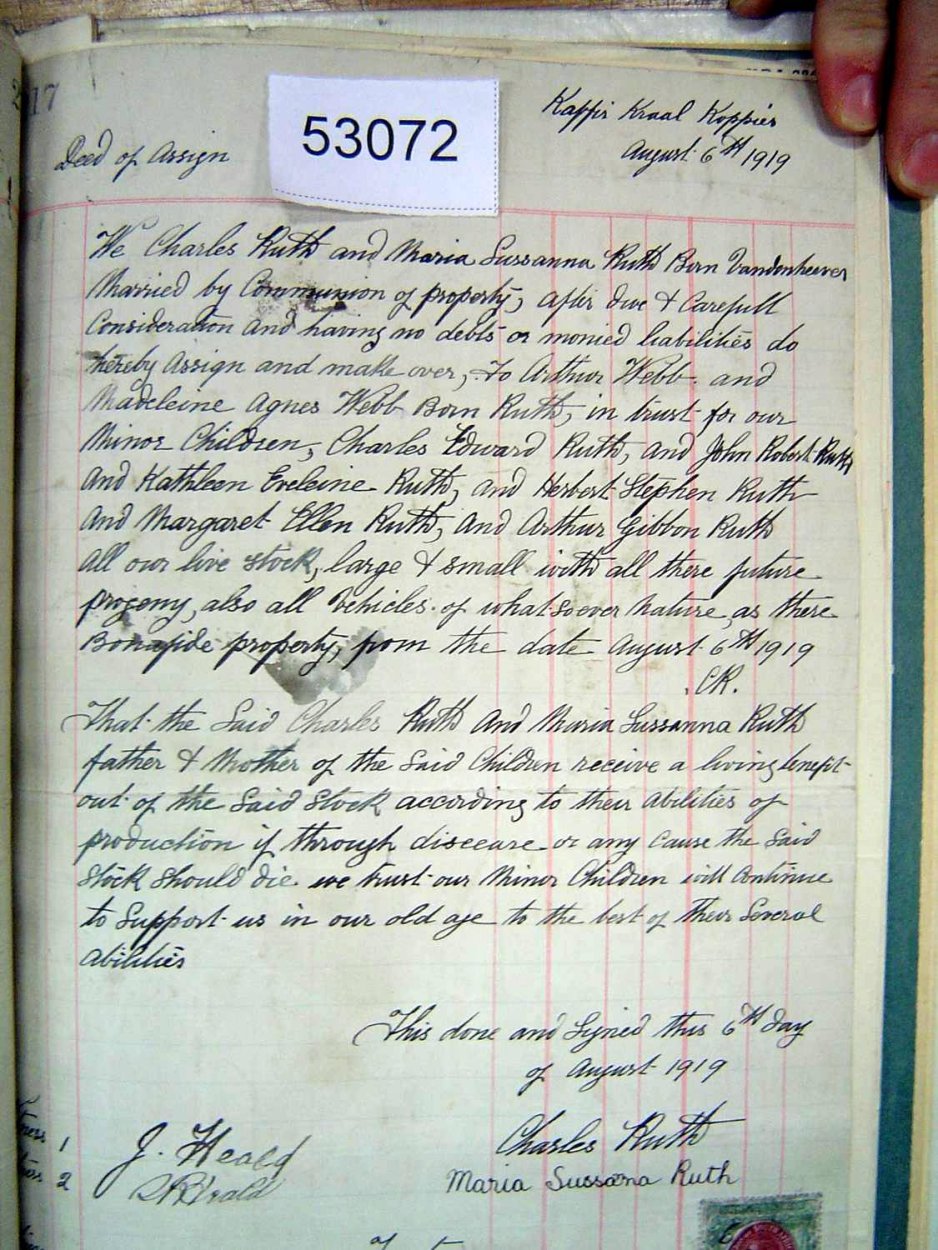 217
53072
Kaffir Kraal Koppies
Deed of Assign
August 6TH 1919
We Charles Ruth and Maria Sussanna Ruth Born Vandenheever
Married by Communion of property, after due & Carefull
Consideration and having no debts or monied liabilities do
hereby Assign and make over, To Arthur Webb and
Madeleine Agnes Webb Born Ruth, in trust for our
Minor Children, Charles Edward Ruth, and John Robert Ruth
and Kathleen Eveleine Ruth, and Herbert Stephen Ruth
and Margaret Ellen Ruth, and Arthur Gibbon Ruth
all our live stock, large & small with all there future
progeny, also all Vehicles of whatsoever Nature as there
Bonafide property, from the date August 6TH 1919
C.R.
That the Said Charles Ruth and Maria Sussanna Ruth
father & Mother of the Said Children receive a living benefit
out of the Said Stock according to their abilities of
production if through diseeare or any Cause the Said
Stock Should die we trust our Minor Children will Continue
to Support us in our old age to the best of their Several
abilities
This done and Signed this 6TH day
of August 1919
1 J. Heald Charles Ruth
2 Maria Sussana Ruth